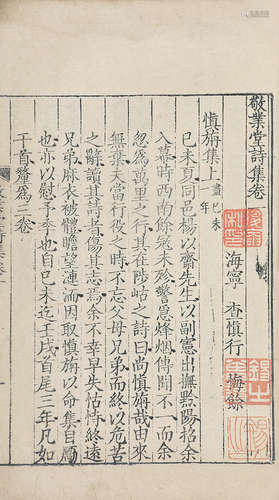 敬業堂詩集卷
海寧 查慎行 悔餘
慎旃集上 盡己未一年
己未夏同邑楊以齋先生以副憲出撫黔陽招余
入幕時西南餘寇未殄警急烽烟傳聞不一而余
忽爲萬里之行其在陟岵之詩曰尚慎旃哉由來
無棄夫當行役之時不忘父母兄弟而終以危苦
之辭讀其詩者傷其志焉余不幸早失怙恃終遠
兄弟麻衣被體瞻望漣洏因取慎旃以命集自勵
也亦以慰予季也自己未迄壬戌首尾三年凡如
干首釐爲三卷